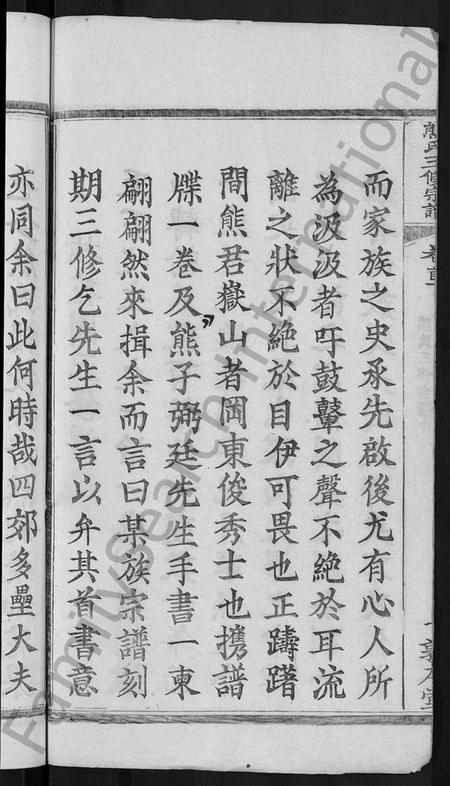 熊氏三修宗譜
卷首
而家族之史承先啟後尤有心人所
為汲汲者吁鼓鼙之聲不絕於耳流
離之狀不絕於目伊可畏也正躊躇
間熊君嶽山者岡東俊秀士也携譜
牒一卷及熊子弼廷先生手書一柬
翩翩然來揖余而言曰某族宗譜刻
期三修乞先生一言以弁其首書意
亦同余曰此何時哉四郊多壘大夫
FamilySearch International